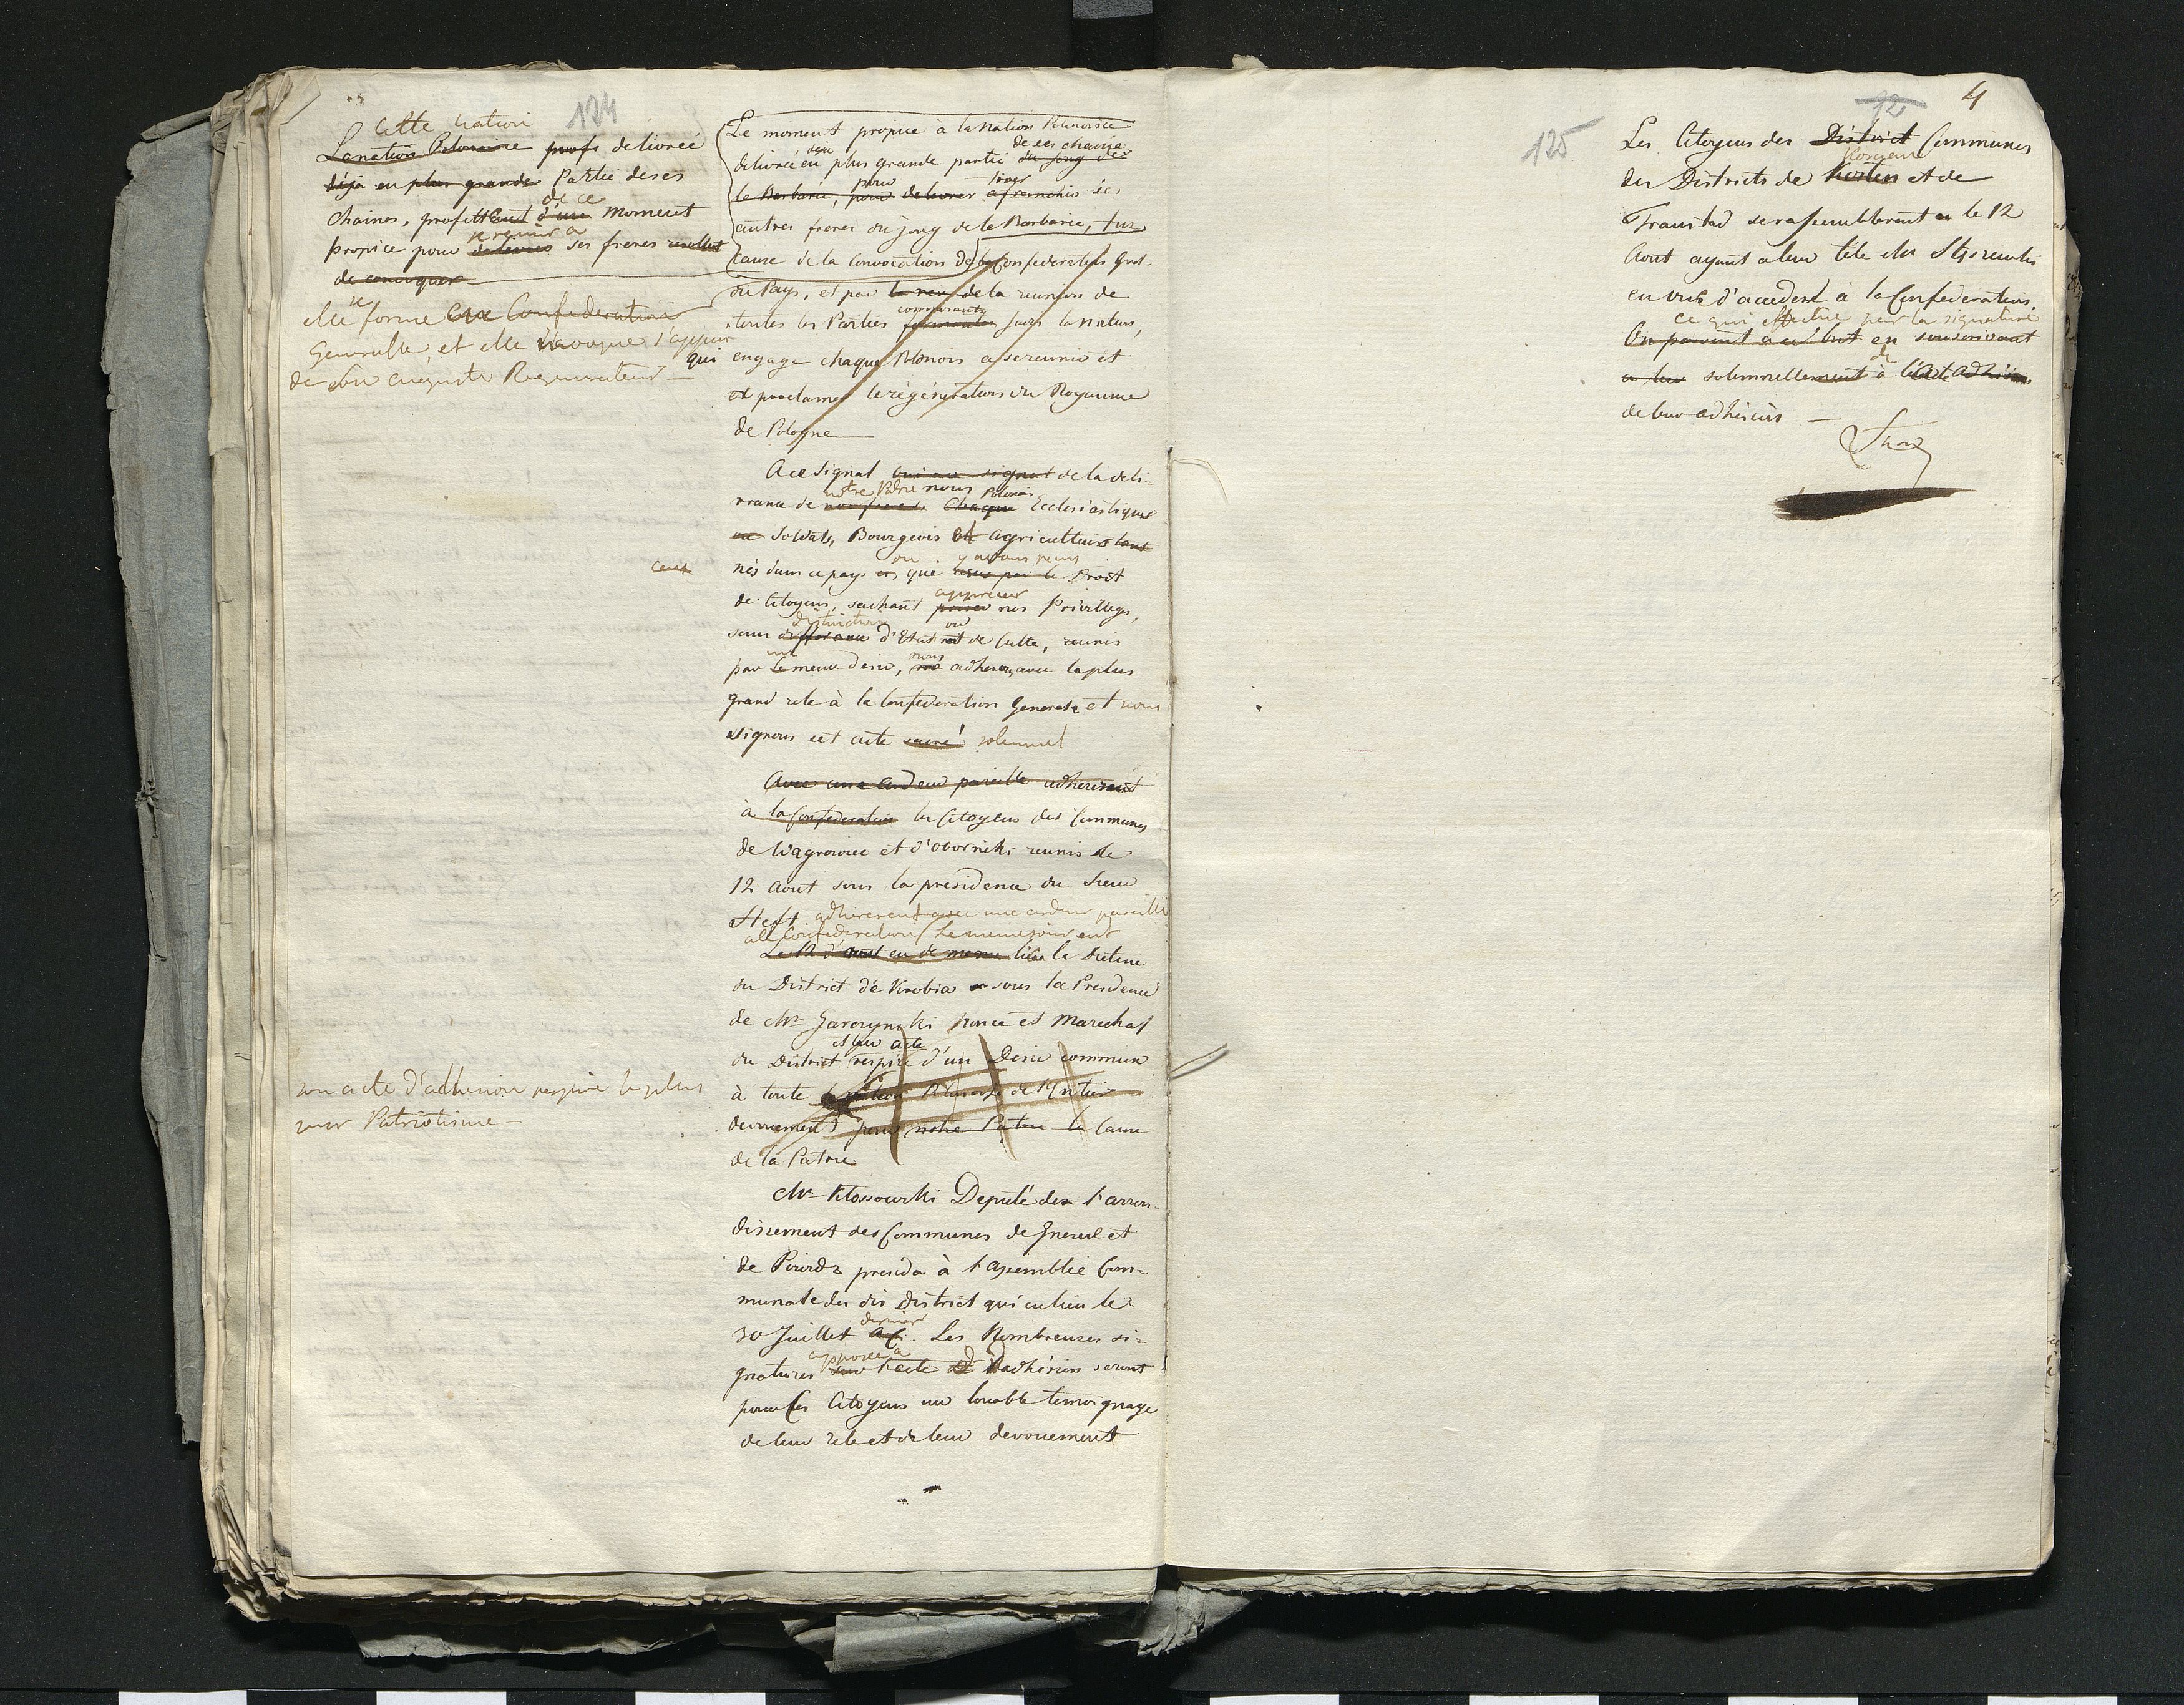 124
Cette nation
La nation Polonaise profs delivrée
déjà en plus grande Partie de ses
de ce
chaines, profittent d'un moment
propice pour delivrer ses freres
de convoquer
elle forme une Confederation
Generalle, et elle invoque l'appui
de son auguste Regenerateur
son acte d'adhesion respire le plus
pur Patriotisme
Le moment propice à la nation Polonoise
de ses chaines
delivrée en plus grande partie du joug de
la Barbarie, pour delivrer afranchir ses
autres freres du joug de la Barbarie, fut
cause de la convocation de la Confederation Gnrl.
du Pays, et par la reu de la reunion de
composants
toutes les Parties formantes la nation,
qui engage chaque Polonois a se reunir et
et proclamer la régénération du Royaume
de Pologne
A ce signal oui au signal de la deli-
notre Patrie nous Polonois
vrance de nos freres Chaque Ecclesiastique
ou Soldats, Bourgeois et agriculteurs tous
nés dans ce pays ou que le Droit
apprecier
de Citoyens, sachant priser nos Privilleges,
distinction ou
sans differance d'Etat et de Culte, reunis
nous
par le meme desir, adherons avec le plus
grand zele à la Confederation Generale et nous
signons cet acte sacré solemnel
Avec une ardeur pareille adhererent
à la Confederation les Citoyens des Communes
de Wagrowiec et d'Obornicki reunis le
12 Aout sous la presidence du Sieur
adhererent avec une ardeur pareille
a la Confederation Le meme jour eut
Le 12 d'Aout eu de meme lieu la Dietine
du District de Krobia sous la Presidence
de Mr Garczynski nonce et Marechal
et leur acte
du District respire d'un Desir commun
à toute la nation Polonoise de l'Entier
devouement pour notre Patrie la cause
de la Patrie
Mr Kossowski Deputé de l'arron-
dissement des Communes de Gnesne et
de Powidz presida à l'Assemblée Com-
munale des dis District qui eu lieu le
dernier
30 Juillet a.c. Les Nombreuses si-
apposée a
gnatures sur l'acte d'adhésion seront
pour les Citoyens un louable temoignage
de leur zele et de leur devouement
125
12
4
Les Citoyens des District Communes
des Districts de Kosten et de
Fraustad se rassemblerent le 12
Aout ayant a leur tête Mr
en vue d'acceder à la Confederation.
ce qui effectué par la signature
On parvint a ce but en souscrivant
de
a leur solemnellement à l'Acte
de leur adhésion